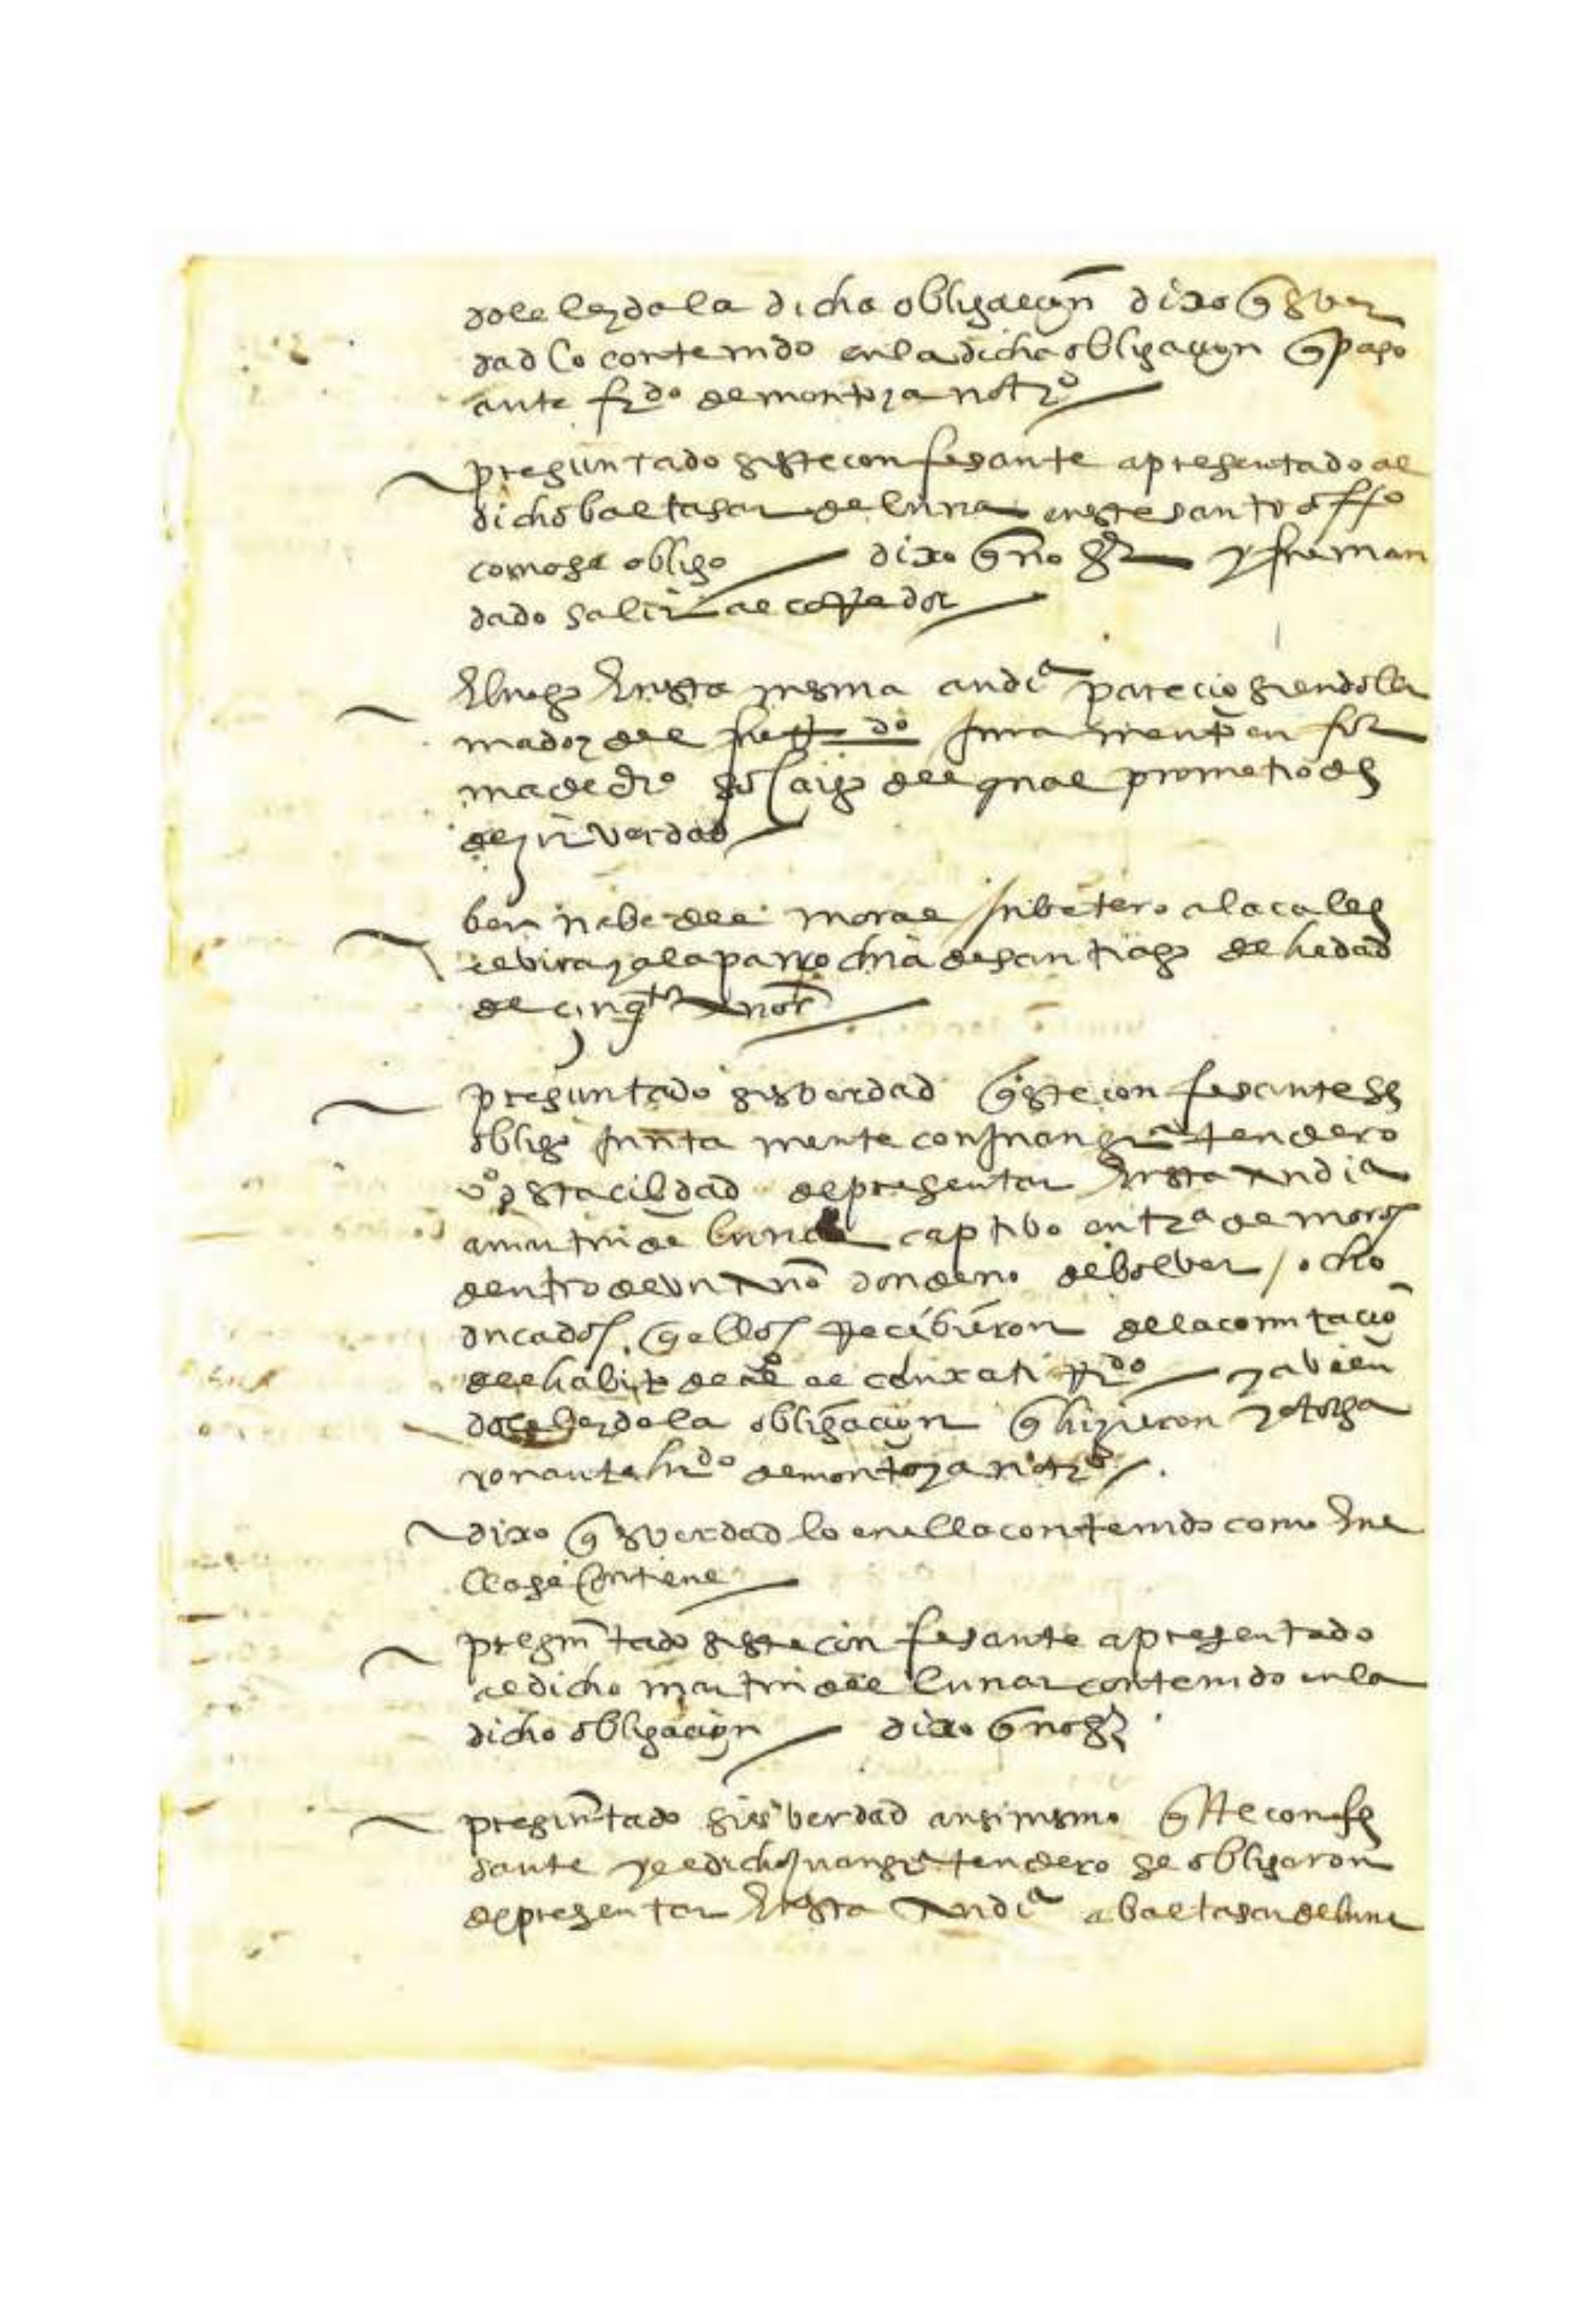 dole leydo la dicha obligaçion dixo q es ver
dad lo contenido en la dicha obligaçion q paso
ante frdo de montoya notro
preguntado si este confesante a presentado al
dicho baltasar de luna en este santo offo
como se obligo dixo q no y fue man
dado salir al corredor
E luego En esta mesma audia parecio siendo lla
mado y del fue rdo Juramento en for
ma de dro so cargo del qual prometio de
dezir verdad
bernabe del moral tribetero a la calle
elbira y a la parrochia de santiago de hedad
de cinqta Anos
preguntado si es berdad q este confesante se
obligo Junta mente con Juan gra tendero
vo desta cibdad de presentar En esta Audia
a martin de luna captibo en tra de moros
dentro de un Año donde no debolver ocho
ducados q ellos Recibieron de la comutaçio
del habito de al condo
dole leydo la obligaçion q hizieron y otorga
ron ante hrdo de montoya notro
dixo q es verdad lo en ella contenido como En e
lla se Contiene
pregutado si este confesante a presentado
al dicho martin del lunar contenido en la
dicho obligaçion dixo q no
pregutado si es berdad ansi mismo q este confe
sante y el dicho Juan gra tendero se obligaron
de presentar En esta Audia a baltasar de luna